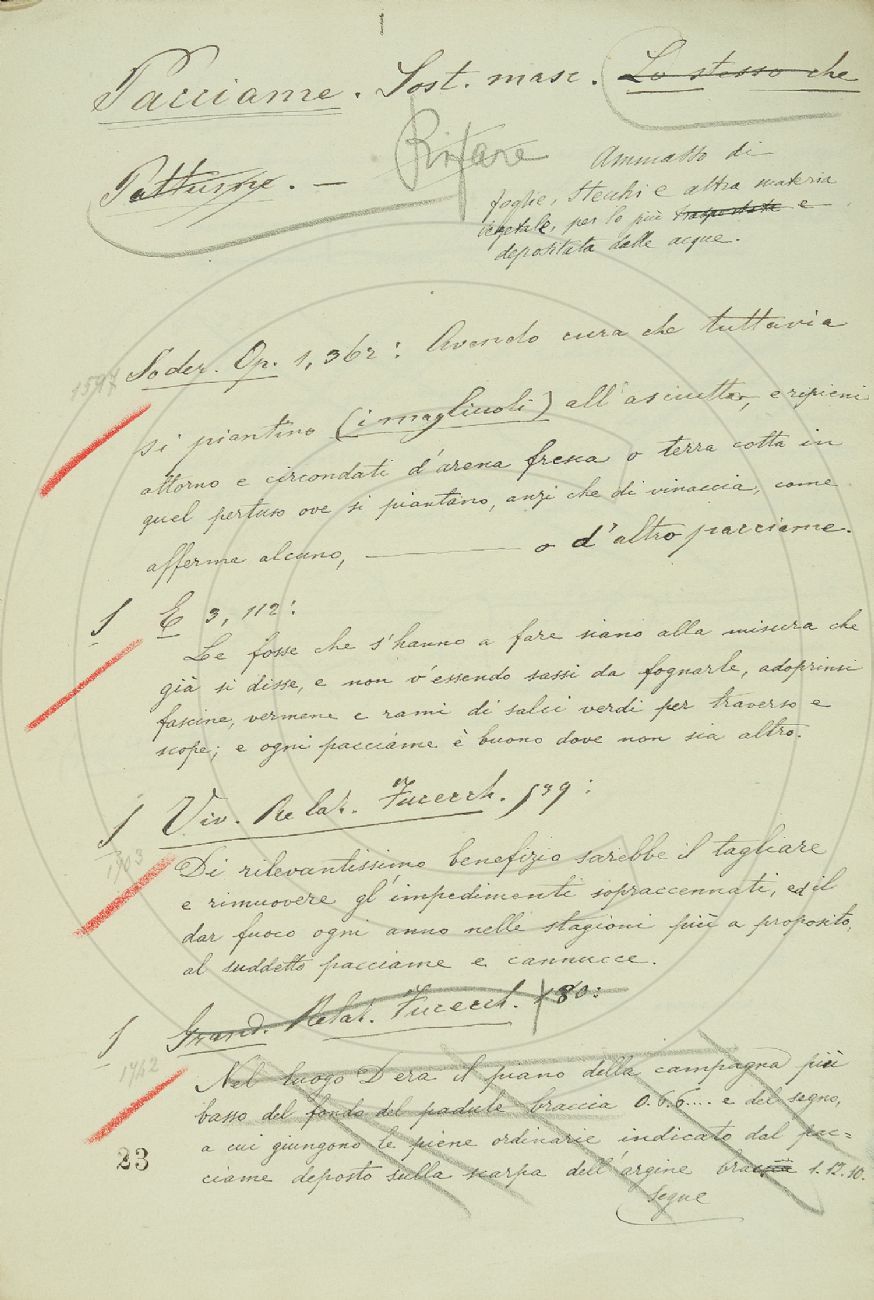 Pacciame. Sost. masc. Lo stesso che
Pattume. — Rifare
Ammasso di
foglie, stecchi e altra materia
vegetale, per lo più trasportata e
depositata dalle acque.
1597 Soder. Op. 1, 362: Avendo cura che tuttavia
si piantino (i magliuoli) all'asciutto, e ripieni
attorno e circondati d'arena fresca o terra cotta in
quel pertuso ove si piantano, anzi che di vinaccia, come
afferma alcuno, ——— o d'altro pacciame.
S E 3, 112:
Le fosse che s'hanno a fare siano alla misura che
già si disse, e non v'essendo sassi da fognarle, adoprinsi
fascine, vermene e rami di salci verdi per traverso e
scope; e ogni pacciame è buono dove non sia altro.
S Viv. Relat. Fucecch. 539:
1703
Di rilevantissimo benefizio sarebbe il tagliare
e rimuovere gl'impedimenti sopraccennati, ed il
dar fuoco ogni anno nelle stagioni più a proposito,
al suddetto pacciame e cannucce.
S Grand. Relat. Fucecch. 180:
1742
Nel luogo D era il piano della campagna più
basso del fondo del padule braccia 0.6.6.... e del segno,
a cui giungono le piene ordinarie indicato dal pac=
ciame deposto sulla scarpa dell'argine braccia 1.12.10.
Segue
23